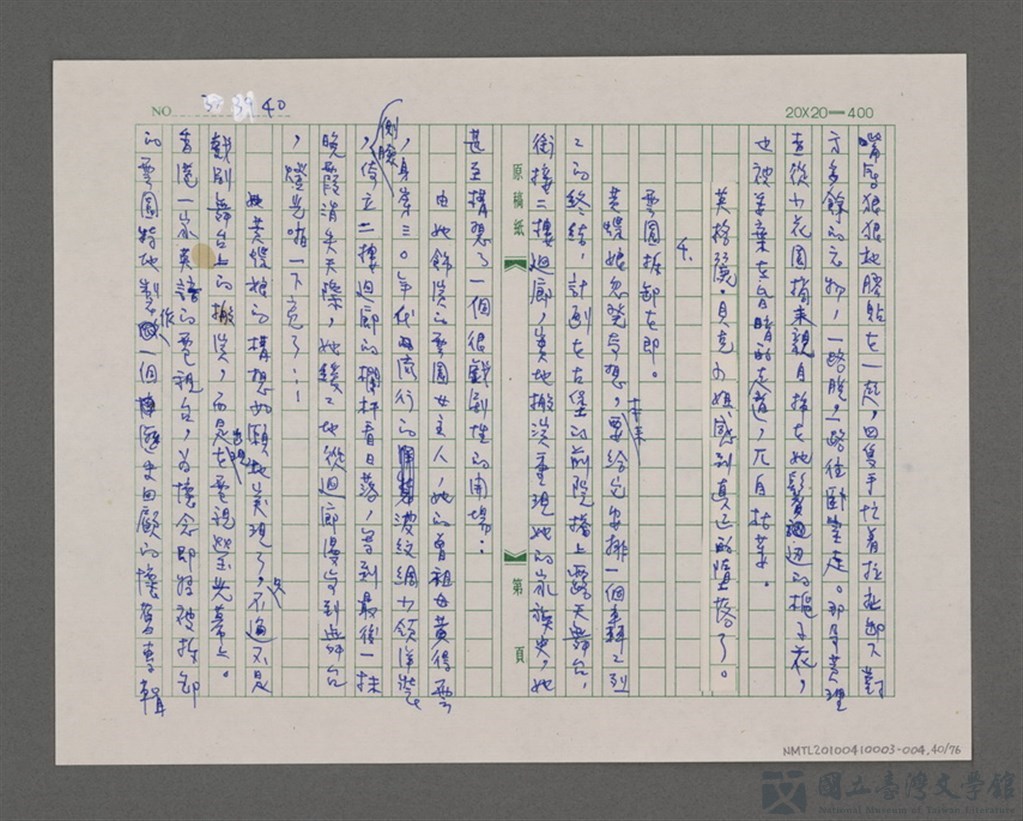 NO. 40
20X20=400
嘴唇狠狠地膠貼在一起，四隻手忙著拉扯卸下對
方多餘的衣物，一路脫，一路往卧室走。那身黃理
查從小花園摘來親自插在她鬢邊的梔子花，
也被棄在昏暗的走道，兀自枯萎。
英格麗．貝克小姐感到真正的墮落了。
4.
雲園拆卸在即。
黃蝶娘忽發奇想，要給它安排一個轟轟烈
烈的終結，計劃在古堡的前院搭上露天舞台，
銜接二樓迴廊，實地搬演重現她的家族史，她
原稿紙 第 頁
甚至構想了一個很戲劇性的開場：
由她飾演的雲園女主人，她的曾祖母黃得雲
，身穿三〇年代流行的波紋綢小領洋裝
，側臉倚立二樓迴廊的欄杆看日落，等到最後一抹
晚霞消失天際，她緩緩地從迴廊漫步到舞台
，燈光啪一下亮了⋯⋯
黃蝶娘的構想如願地實現了，不過不是
戲劇舞台上的搬演，而是出現在電視螢光幕上。
香港一家英語的電視台，為懷念即將被拆卸
的雲園特地製作一個歷史回顧的懷舊專輯
NMTL20100410003-004,40/76
國立臺灣文學館
National Museum of Taiwan Literature